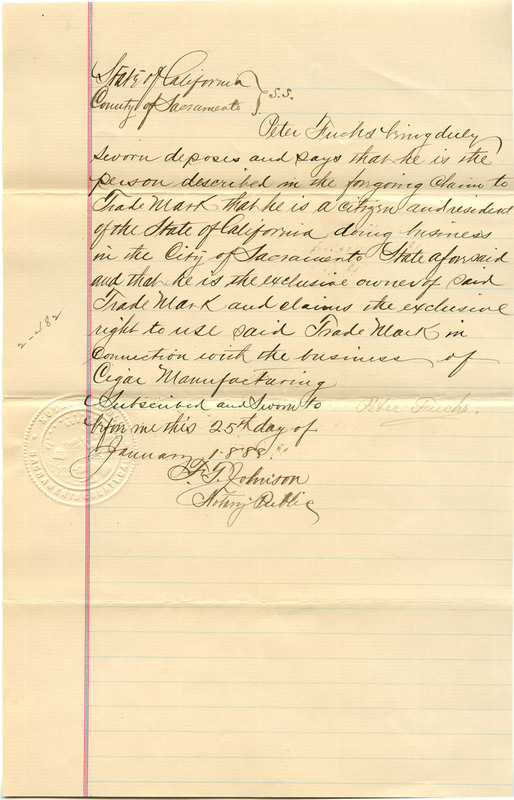 State of California } s.s.
County of Sacramento
Peter Fuchs being duly
sworn deposes and says that he is the
person described in the forgoing Claim to
Trade Mark that he is a citizen and resident
of the State of California doing business
in the City of Sacramento State aforesaid
and that he is the exclusive owner of said
Trade Mark and claims the exclusive
right to use said Trade Mark in
Connection with the business of
Cigar Manufacturing
Subscribed and Sworn to Peter Fuchs.
before me this 25th day of
January 1888.
F. T. Johnson
Notary Public
2-482